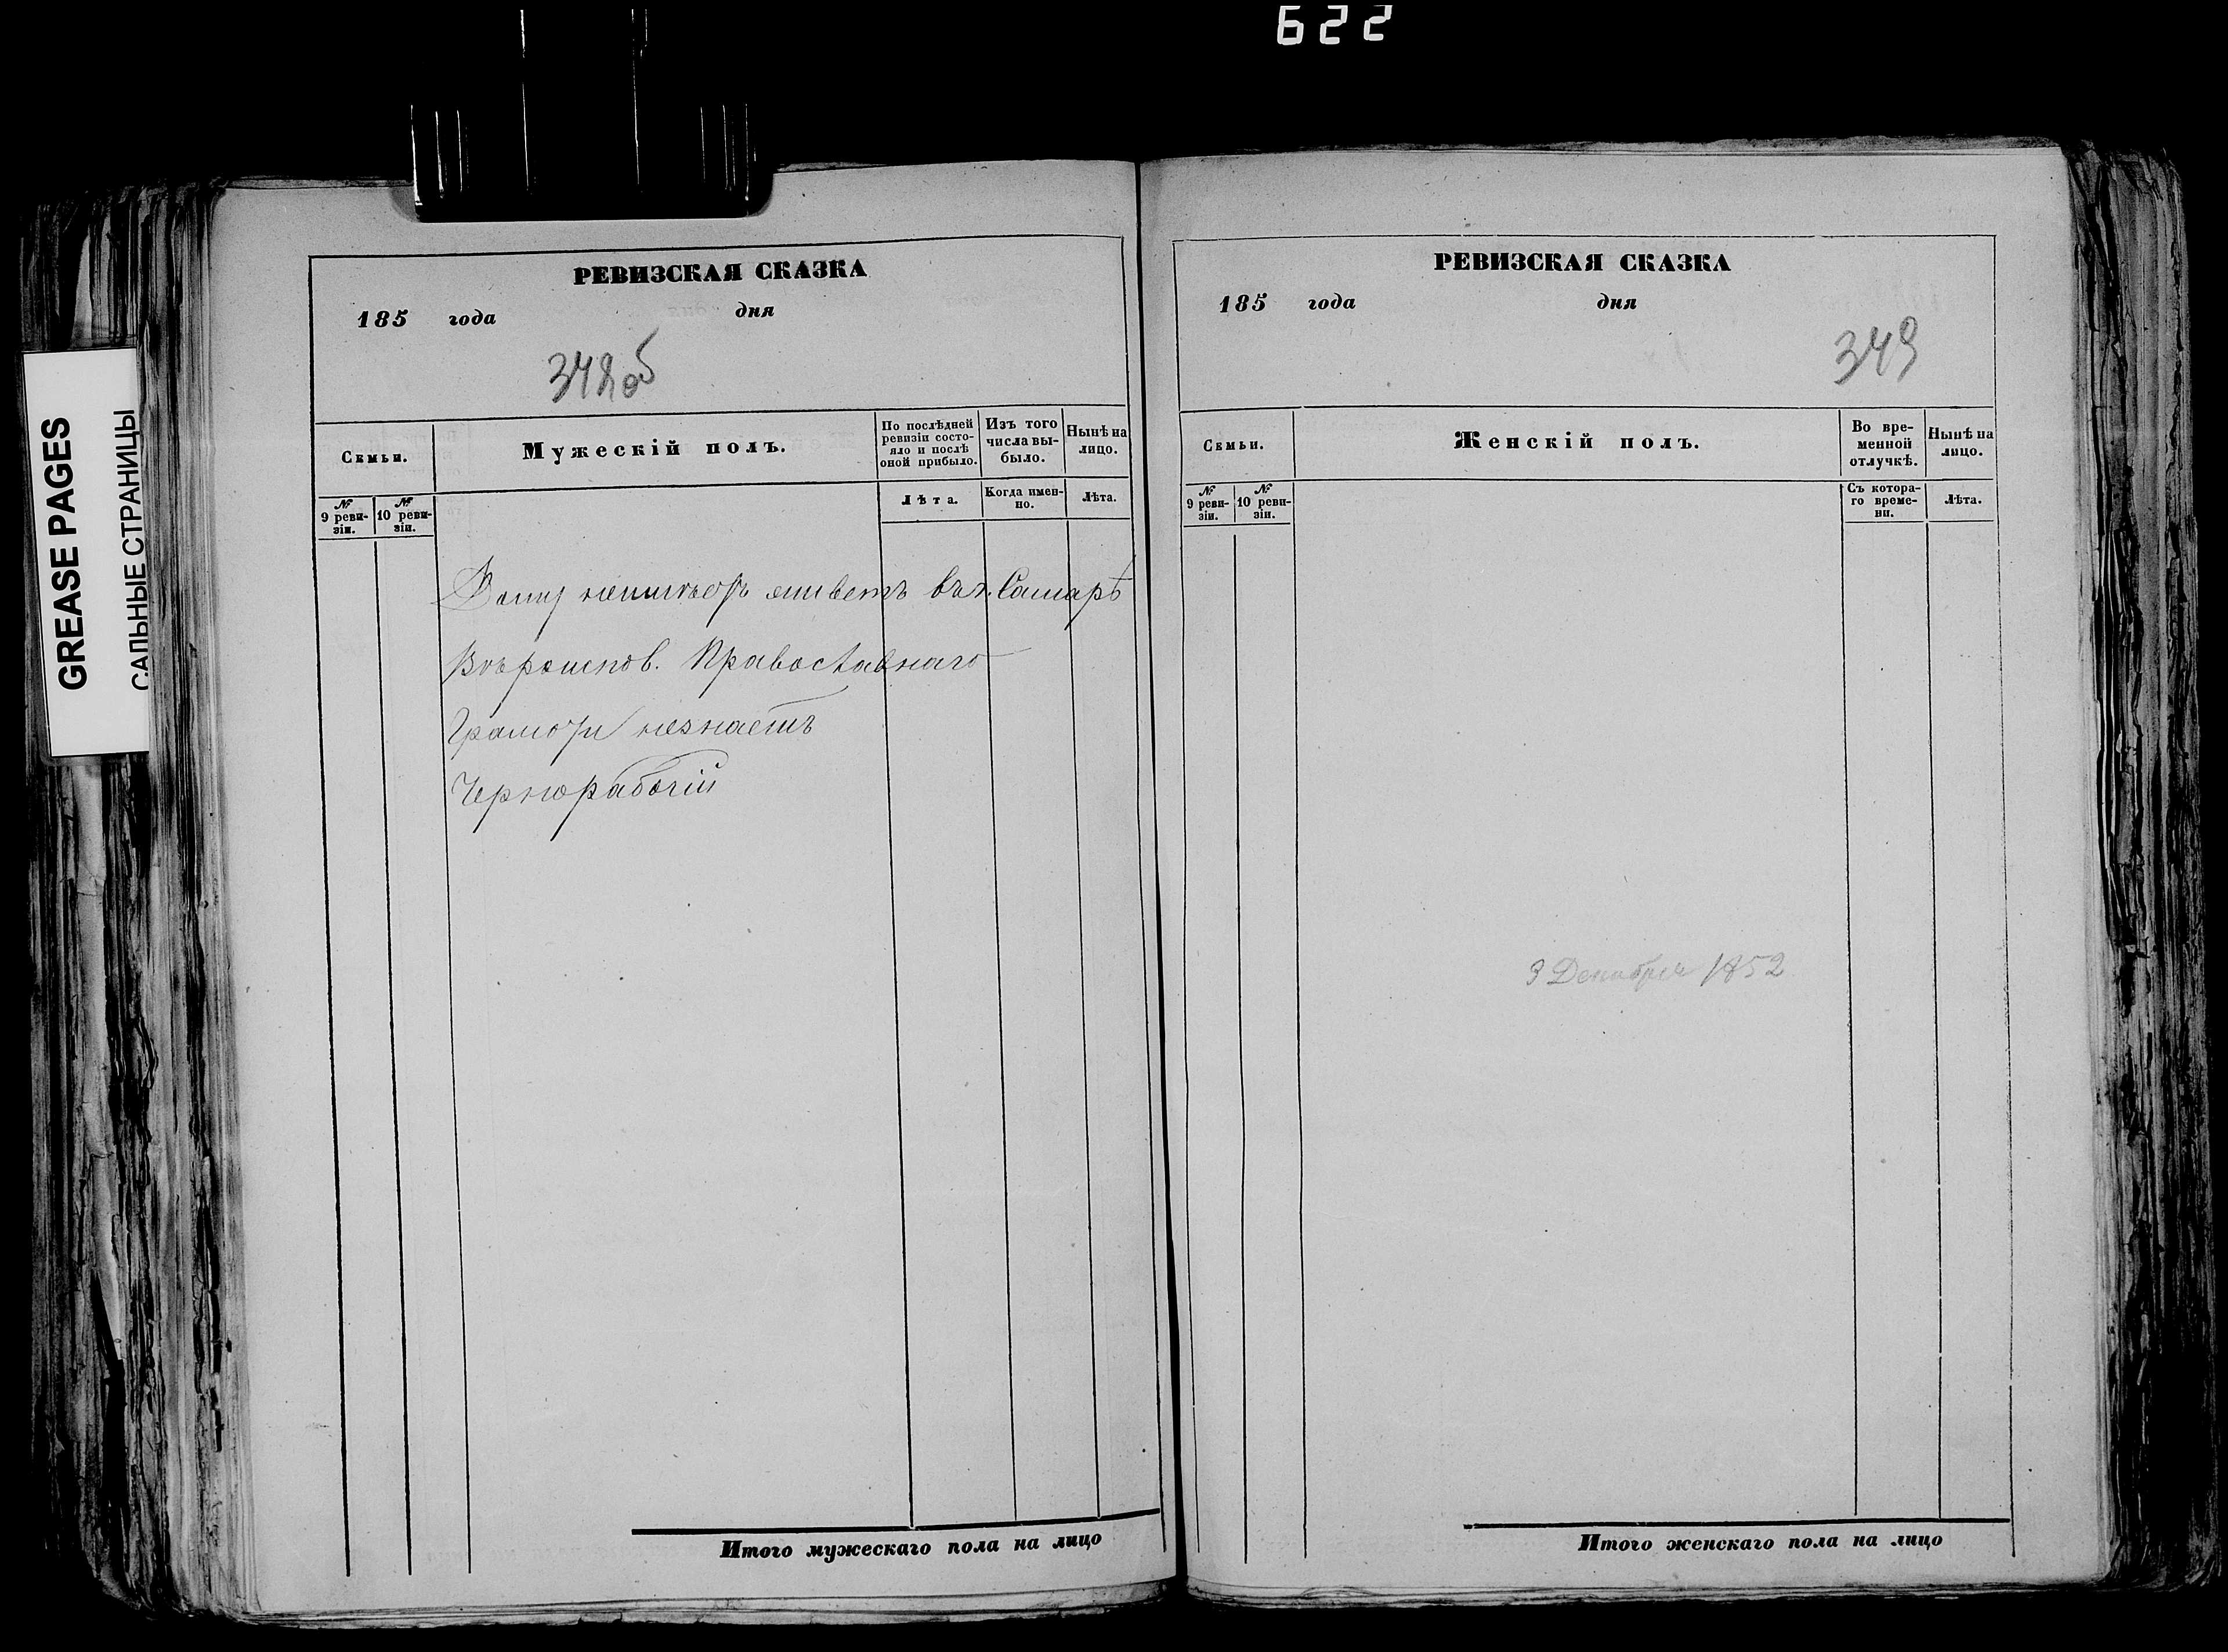 622
GREASE PAGES
САЛЬНЫЕ СТРАНИЦЫ
РЕВИЗСКАЯ СКАЗКА
185 года дня
348 об
Семьи.
Мужескій полъ.
По послѣдней ревизіи состо-
яло и послѣ оной прибыло.
Изъ того числа вы-
было.
Нынѣ на лицо.
№ 9 реви-
зіи.
№ 10 реви-
зіи.
Лѣта.
Когда имен-
но.
Лѣта.
Дому неимѣетъ живетъ въ г. Самарѣ
Вѣроиспов. Православнаго
Грамоты незнаетъ
Чернорабочій
Итого мужескаго пола на лицо
РЕВИЗСКАЯ СКАЗКА
185 года дня
349
Семьи.
Женскій полъ.
Во вре-
менной
отлучкѣ.
Нынѣ на лицо.
№ 9 реви-
зіи.
№ 10 реви-
зіи.
Съ котора-
го време-
ни.
Лѣта.
3 Декабря 1852
Итого женскаго пола на лицо